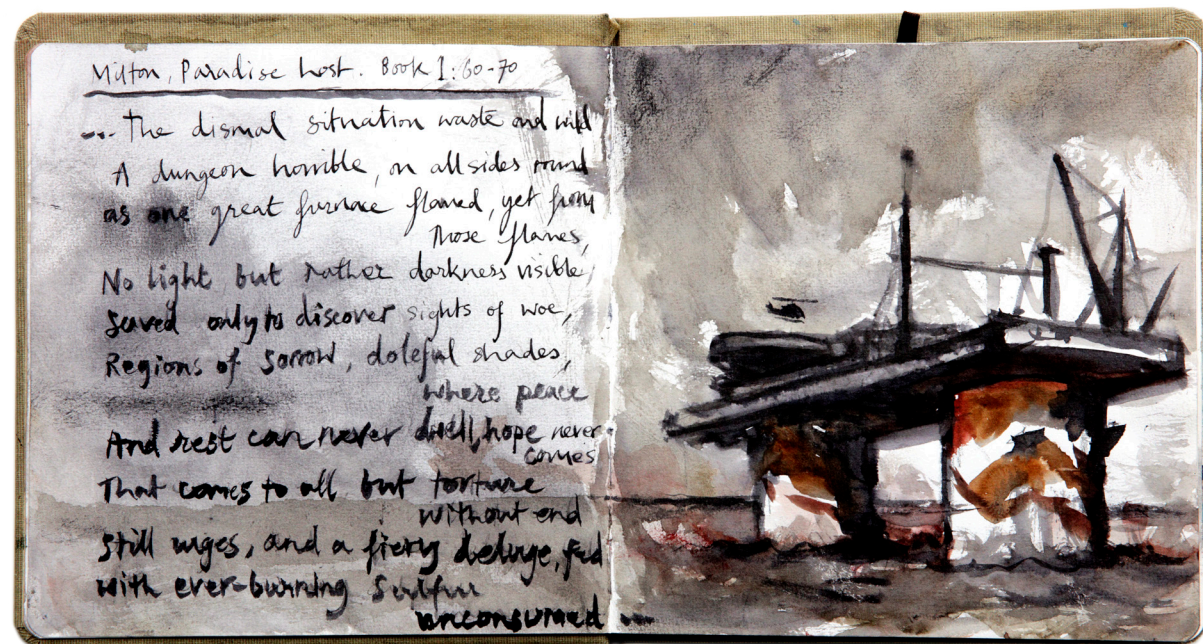 Milton, Paradise Lost. Book I: 60-70
... The dismal situation waste and wild
A dungeon horrible, on all sides round
as one great furnace flamed, yet from
Those flames,
No light but rather darkness visible
Served only to discover sights of woe,
Regions of sorrow, doleful shades,
where peace
And rest can never dwell, hope never
comes
That comes to all but torture
without end
Still urges, and a fiery deluge, fed
with ever-burning Sulfur
unconsumed ...